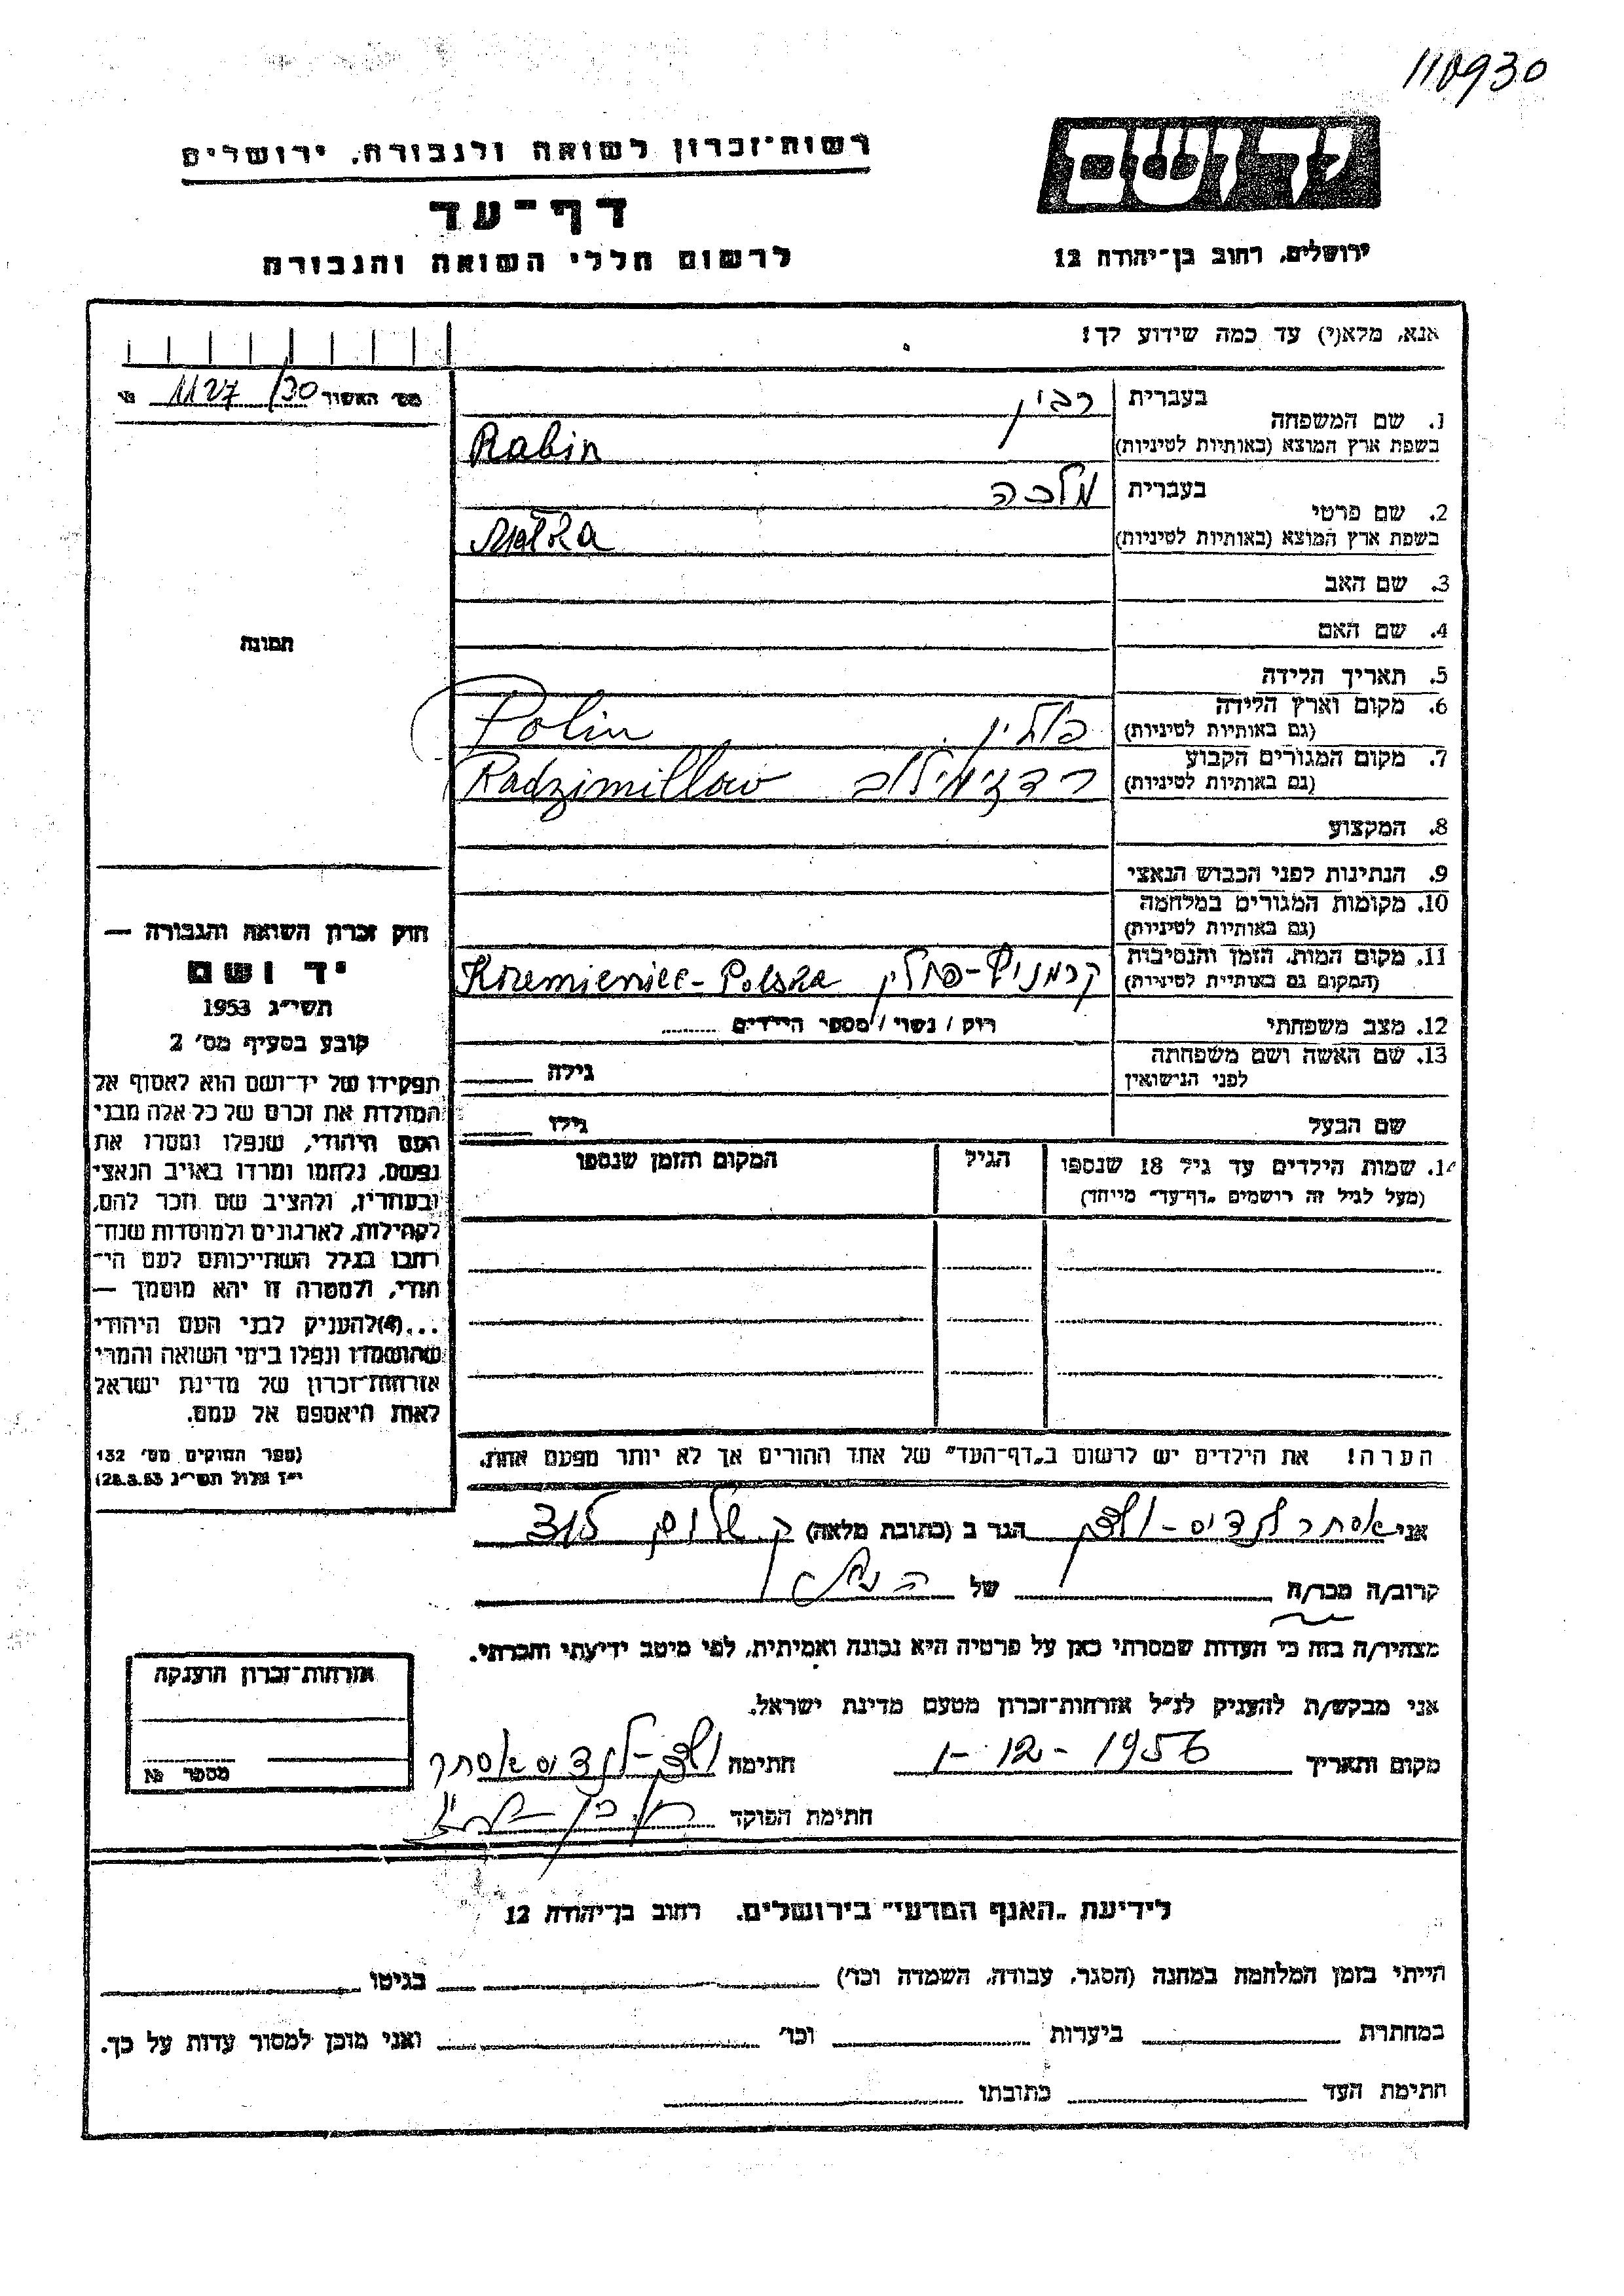 110930
יד ושם
רשות־זכרון לשואה ולגבורה, ירושלים
דף־עד
לרשום חללי השואה והגבורה
ירושלים, רחוב בן־יהודה 12
אנא, מלא(י) עד כמה שידוע לך!
מס׳ האשור 1127/30
1. שם המשפחה
בעברית רבין
בשפת ארץ המוצא (באותיות לטיניות) Rabin
2. שם פרטי
בעברית מלכה
בשפת ארץ המוצא (באותיות לטיניות) Malka
3. שם האב
4. שם האם
5. תאריך הלידה
6. מקום וארץ הלידה
(גם באותיות לטיניות) פולין Polin
7. מקום המגורים הקבוע
(גם באותיות לטיניות) רדזימילוב Radzimillow
8. המקצוע
9. הנתינות לפני הכבוש הנאצי
10. מקומות המגורים במלחמה
(גם באותיות לטיניות)
11. מקום המות, הזמן והנסיבות
(המקום גם באותיית לטיניות) קרמניץ-פולין Kremieniec-Polska
12. מצב משפחתי רווק / נשוי / מספר הילדים
13. שם האשה ושם משפחתה
לפני הנישואין גילה
שם הבעל גילו
14. שמות הילדים עד גיל 18 שנספו הגיל המקום והזמן שנספו
(מעל לגיל זה רושמים „דף־עד״ מייחד)
תמונה
חוק זכרון השואה והגבורה —
יד ושם
תשי״ג 1953
קובע בסעיף מס׳ 2
תפקידו של יד־ושם הוא לאסוף אל
המולדת את זכרם של כל אלה מבני
העם היהודי, שנפלו ומסרו את
נפשם, נלחמו ומרדו באויב הנאצי
ובעוזריו, ולהציב שם וזכר להם,
לקהילות, לארגונים ולמוסדות שנח־
רבו בגלל השתייכותם לעם הי־
הודי, ולמטרה זו יהא מוסמך —
...(4)להעניק לבני העם היהודי
שהושמדו ונפלו בימי השואה והמרי
אזרחות־זכרון של מדינת ישראל
לאות היאספם אל עמם.
(ספר החוקים מס׳ 132
י״ז אלול תשי״ג 28.8.53)
הערה! את הילדים יש לרשום ב„דף־העד״ של אחד ההורים אך לא יותר מפעם אחת.
אני אסתר לנדיס- הגר ב (כתובת מלאה)
קרוב/ה מכר/ה של
מצהיר/ה בזה כי העדות שמסרתי כאן על פרטיה היא נכונה ואמיתית, לפי מיטב ידיעתי והכרתי.
אני מבקש/ת להעניק לנ״ל אזרחות־זכרון מטעם מדינת ישראל.
מקום ותאריך 1-12-1956 חתימה לנדיס אסתר
חתימת הפוקד
אזרחות־זכרון הוענקה
מספר
לידיעת „האגף המדעי״ בירושלים, רחוב בן־יהודה 12
הייתי בזמן המלחמה במחנה (הסגר, עבודה, השמדה וכו׳) בגיטו
במחתרת ביערות וכו׳ ואני מוכן למסור עדות על כך.
חתימת העד כתובתו